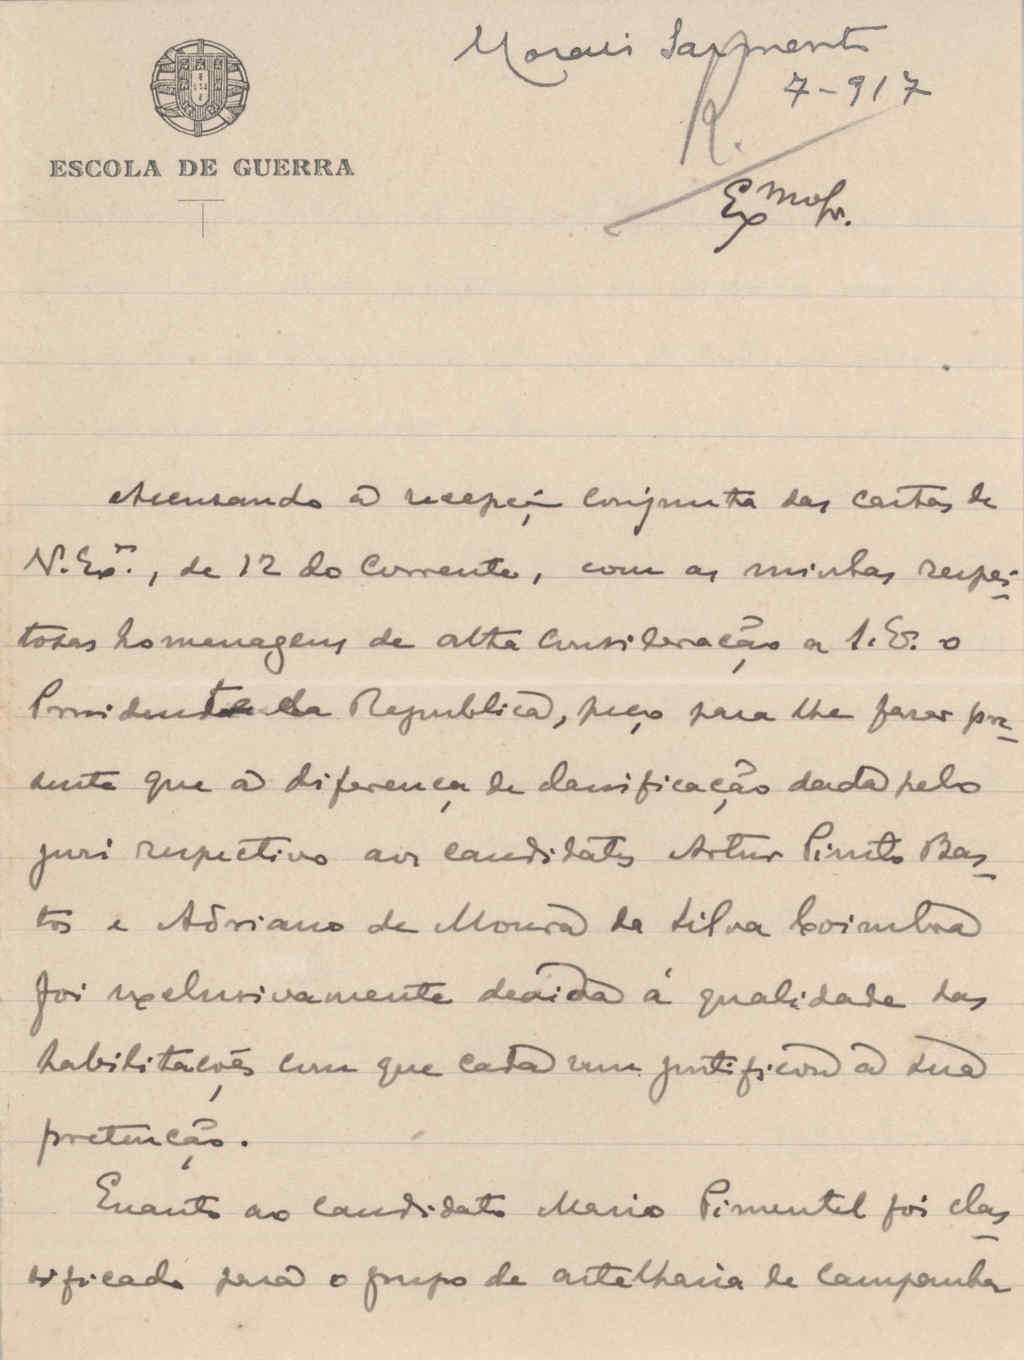 Morais Sarmento
7-917
R.
ESCOLA DE GUERRA
Exmo Sr.
Acusando a recepção conjunta das cartas de
V. Exª., de 12 do corrente, com as minhas respei-
tosas homenagens de alta consideração a S. Ex. o
Presidente da Republica, peço para lhe fazer pre-
sente que a diferença de classificação dada pelo
juri respectivo aos candidatos Artur Pinto Bas-
tos e Adriano de Moura da Silva Coimbra
foi exclusivamente devida á qualidade das
habilitações com que cada um justificou a sua
pretenção.
Quanto ao candidato Mario Pimentel foi clas-
sificado para o grupo de artelharia de campanha